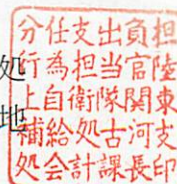 処
地
分任支出負担
行為担当官陸
上自衛隊関東
補給処古河支
処会計課長印